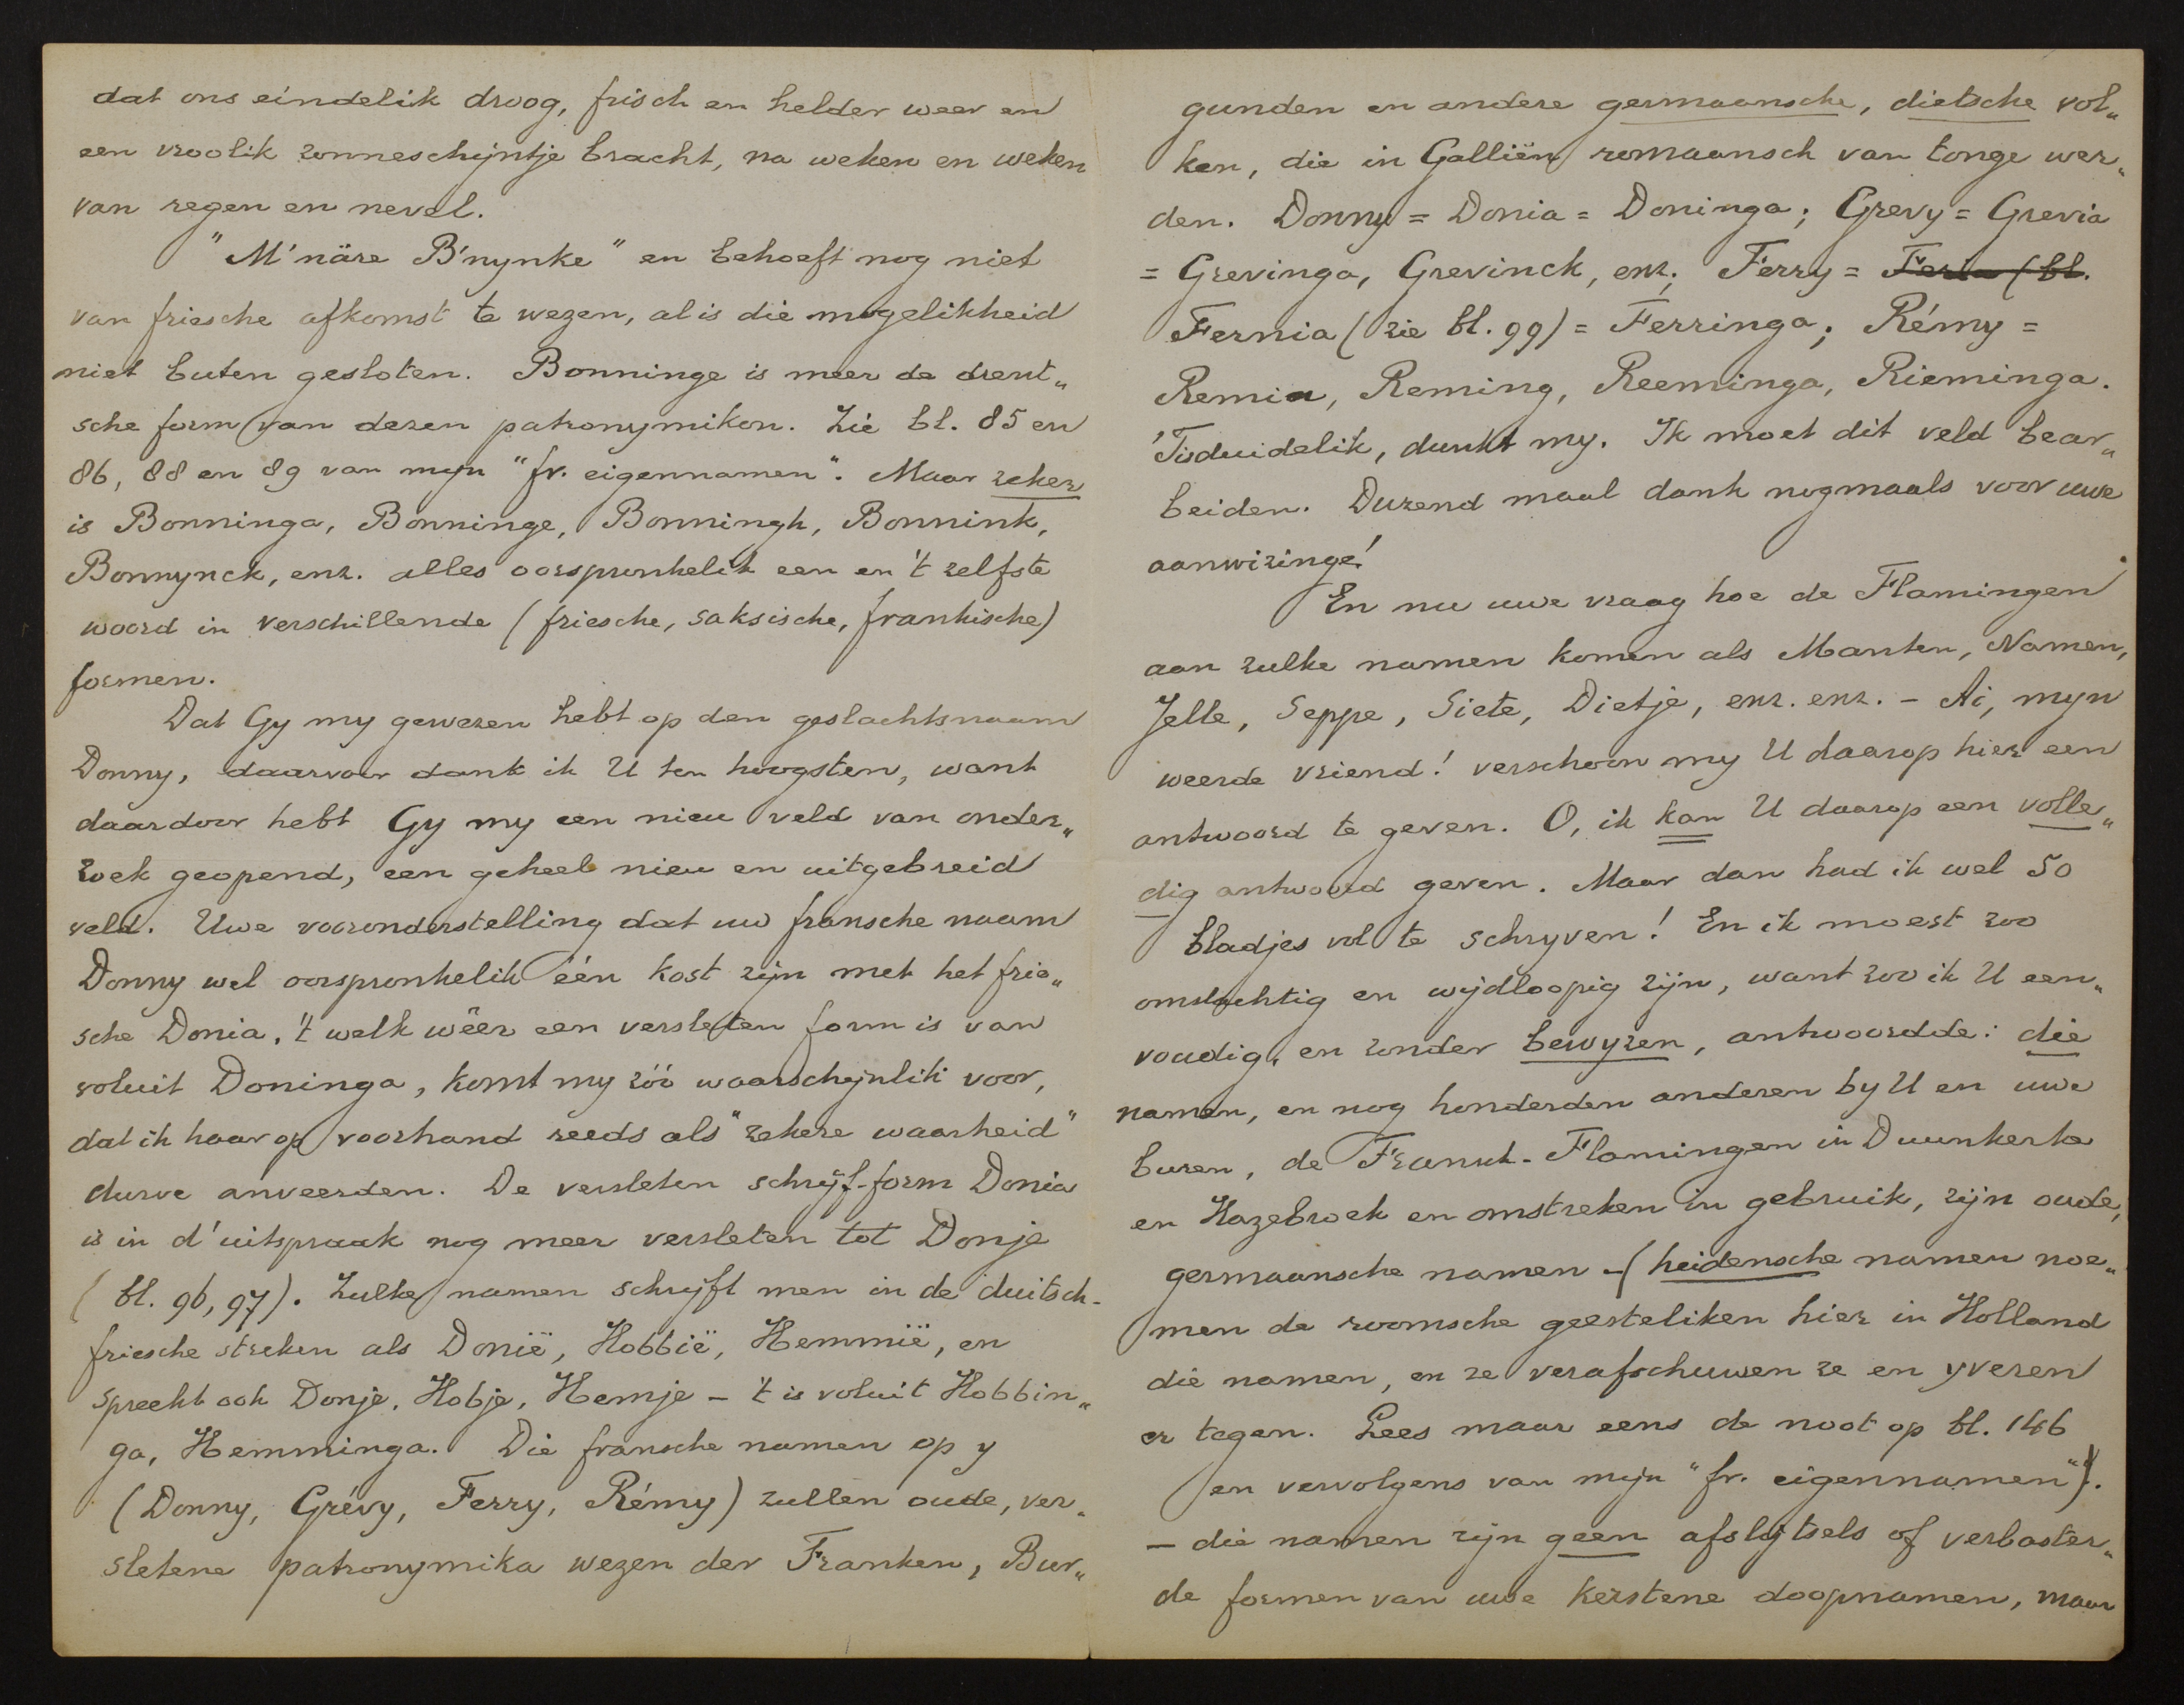 dat ons eindelik droog, frisch en helder weer en
een vroolik zonneschijntje bracht, na weken en weken
van regen en nevel.
"M'näre B'nynke" en behoeft nog niet
van friesche afkomst te wezen, al is die mogelikheid
niet buten gesloten. Bonninge is meer de drent„
sche form van dezen patronymikon. Zie bl. 85 en
86, 88 en 89 van mijn "fr. eigennamen". Maar zeker
is Bonninga, Bonninge, Bonningh, Bonnink,
Bonnynck, enz. alles oorspronkelik een en 't zelfste
woord in verschillende (friesche, saksische, frankische)
formen.
Dat Gy my gewezen hebt op den geslachtsnaam
Donny, daarvoor dank ik U ten hoogsten, want
daardoor hebt Gy my een nieu veld van onder„
zoek geopend, een geheel nieu en uitgebreid
veld. Uwe vooronderstelling dat uw fransche naam
Donny wel oorspronkelik één kost zijn met het frie„
sche Donia, 't welk wêer een versleten form is van
voluit Doninga, komt my zóó waarschijnlik voor,
dat ik haar op voorhand reeds als "zekere waarheid"
durve anveerden. De versleten schrijf-form Donia
is in d'uitspraak nog meer versleten tot Donje
(bl. 96, 97). Zulke namen schrijft men in de duitsch-
friesche streken als Donië, Hobbië, Hemmië, en
spreekt ook Donje, Hobje, Hemje - 't is voluit Hobbin„
ga, Hemminga. Die fransche namen op y
(Donny, Grévy, Ferry, Rémy) zullen oude, ver„
sletene patronymika wezen der Franken, Bur„
gunden en andere germaansche, dietsche vol„
ken, die in Galliën romaansch van tonge wer„
den. Donny = Donia = Doninga; Grevy = Grevia
= Grevinga, Grevinck, enz; Ferry = Feria (bl.
Fernia (zie bl. 99) = Ferringa; Rémy =
Remia, Reming, Reeminga, Rieminga.
'Tis duidelik, dunkt my. Ik moet dit veld bear„
beiden. Duzend maal dank nogmaals voor uwe
aanwizinge!
En nu uwe vraag hoe de Flamingen
aan zulke namen komen als Manten, Namen,
Jelle, Seppe, Siete, Dietje, enz. enz. - Ai, mijn
weerde vriend! verschoon my U daarop hier een
antwoord te geven. O, ik kan U daarop een volle„
dig antwoord geven. Maar dan had ik wel 50
bladjes vol te schryven! En ik moest zoo
omslachtig en wijdloopig zijn, want zoo ik U een„
voudig, en zonder bewyzen, antwoordde: die
namen, en nog honderden anderen by U en uwe
buren, de Fransch-Flamingen in Duunkerke
en Hazebroek en omstreken in gebruik, zijn oude,
germaansche namen - (heidensche namen noe„
men de roomsche geesteliken hier in Holland
die namen, en ze verafschuwen ze en yveren
er tegen. Lees maar eens de noot op bl. 146
en vervolgens van mijn "fr. eigennamen").
- die namen zijn geen afslijtsels of verbaster„
de formen van uwe kerstene doopnamen, maar